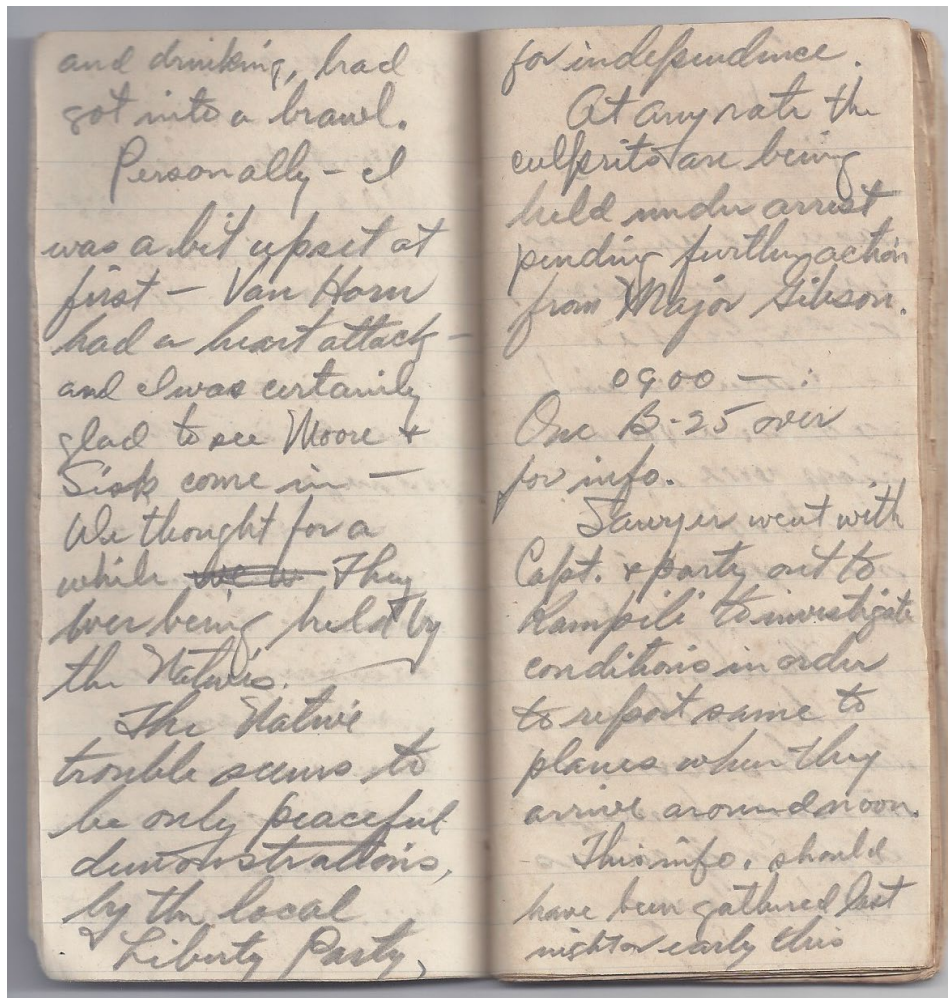 and drinking, had
got into a brawl.
Personally - I
was a bit upset at
first - Van Horn
had a heart attack -
and I was certainly
glad to see Moore +
Sisk come in -
We thought for a
while we w They
wer being held by
the Natives.
The Native
trouble seems to
be only peaceful
demonstrations,
by the local
Liberty Party,
for independence.
At any rate the
culprits are being
held under arrest
pending further action
from Major Gibson.
0900 - :
One B-25 over
for info.
Sawyer went with
Capt. & party out to
Rampili to investigate
conditions in order
to report same to
planes when they
arrive around noon.
This info. should
have been gathered last
night or early this